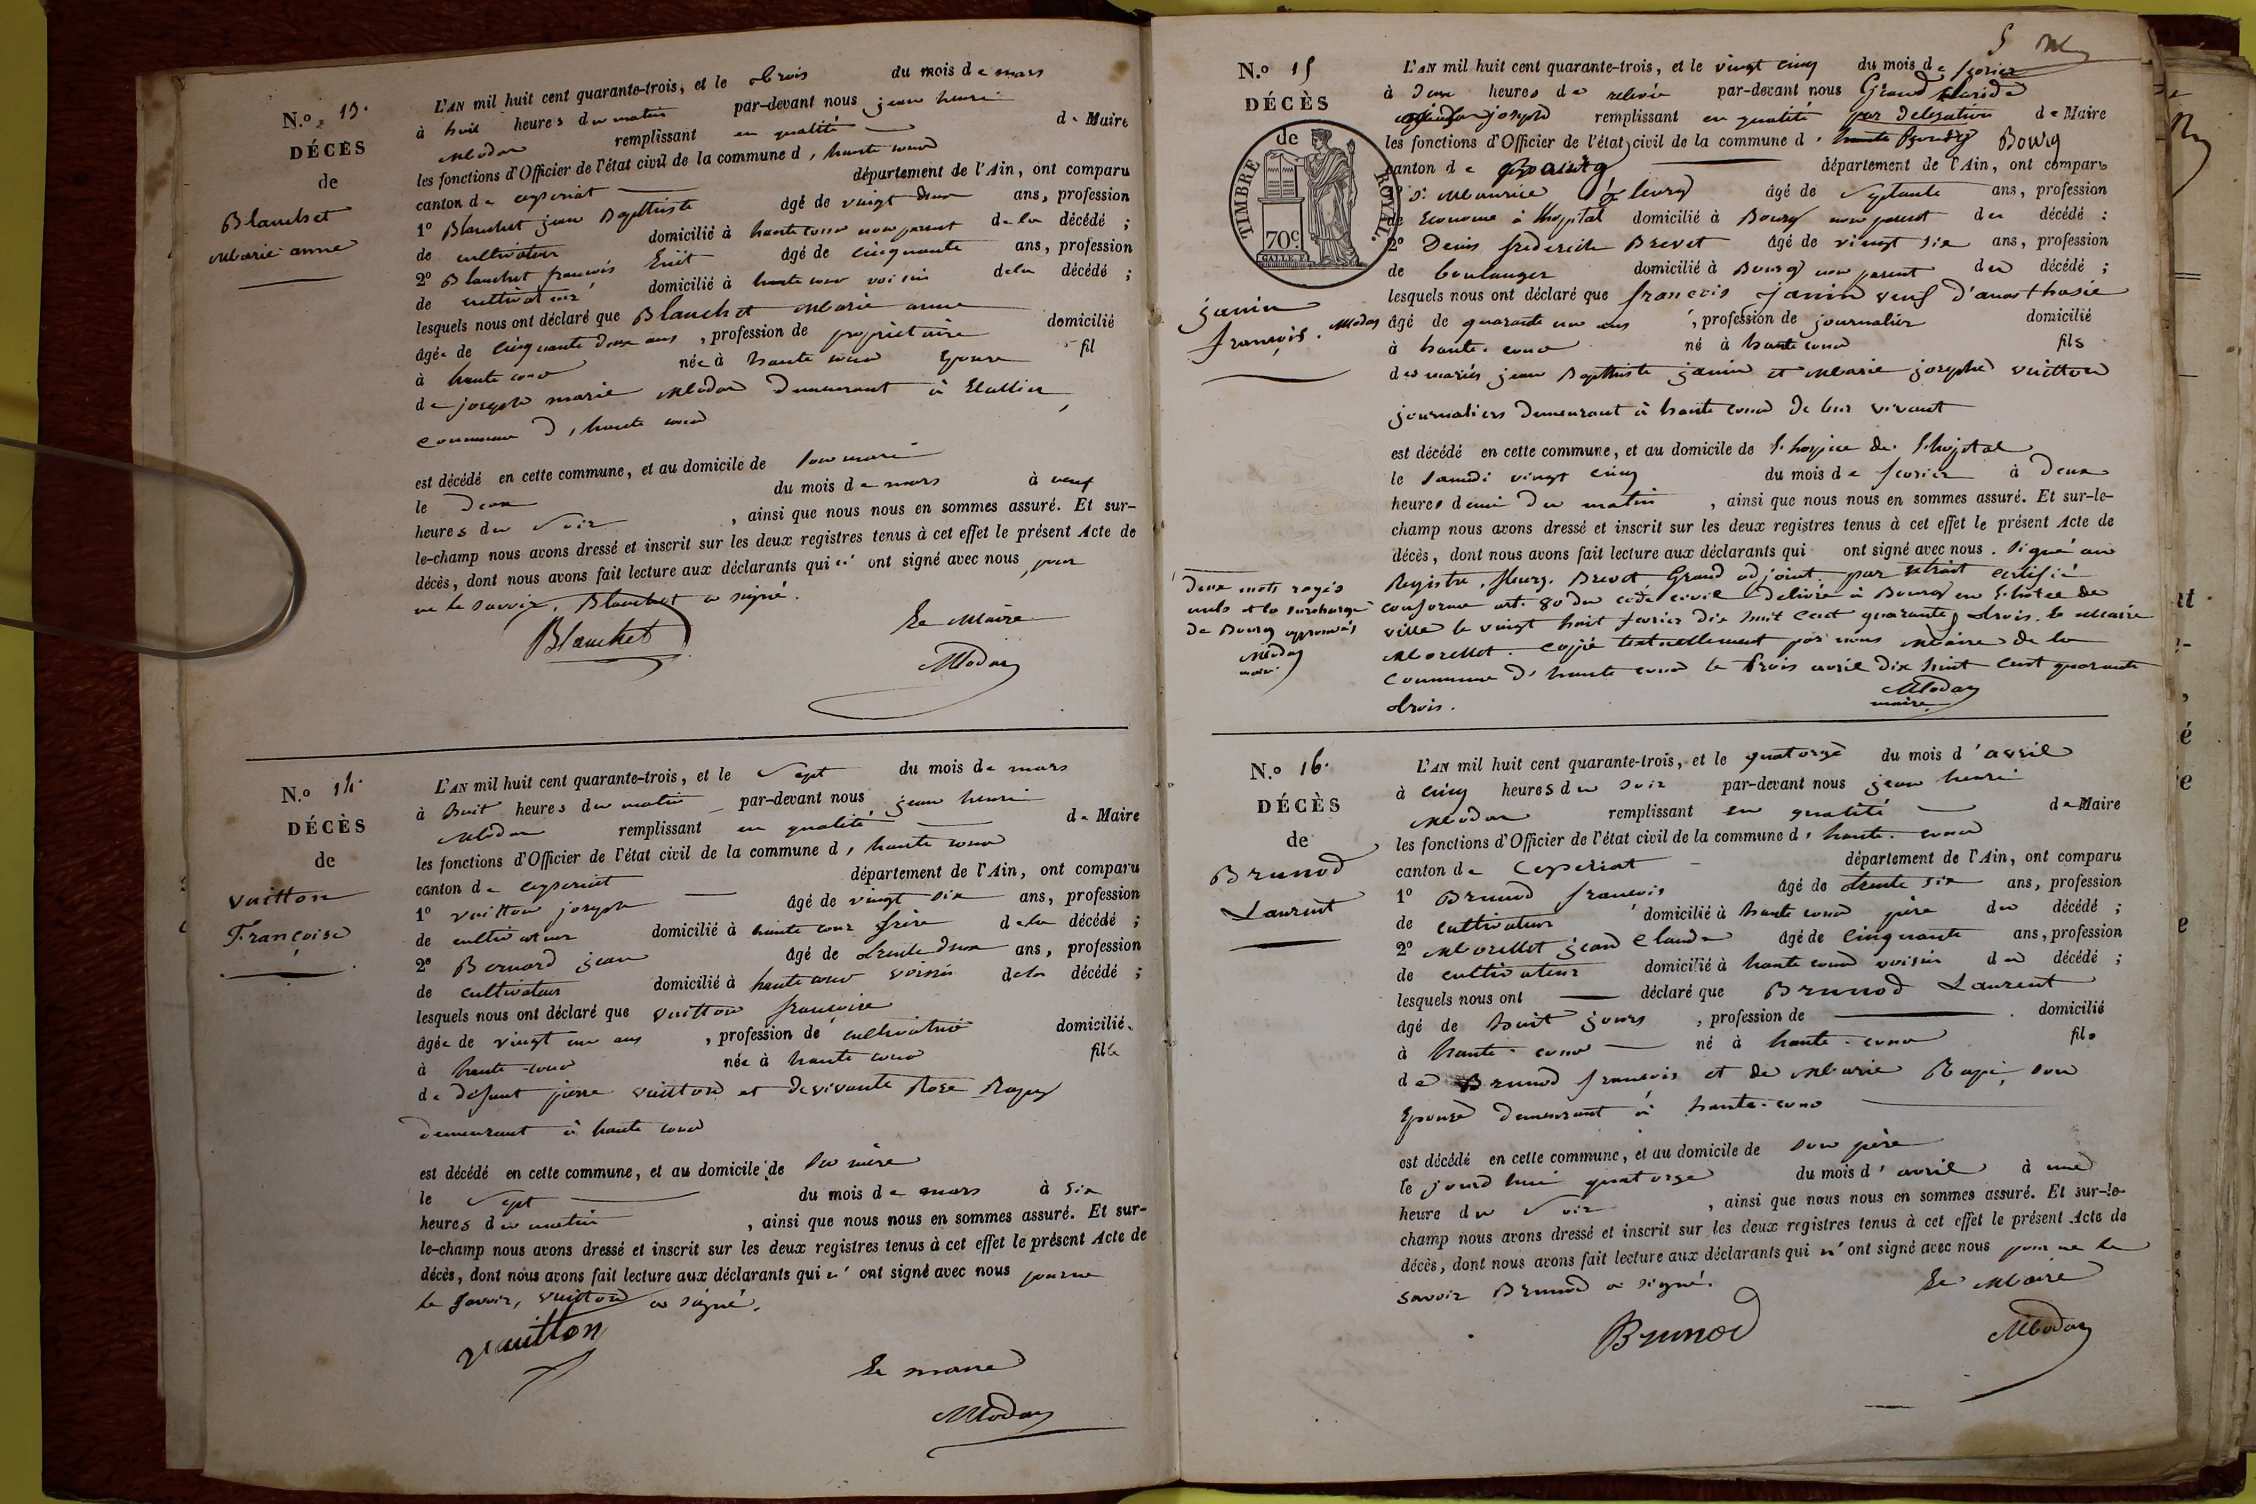 N.º 13.
DÉCÈS
de
Blanchet
Marie anne
L'AN mil huit cent quarante-trois, et le trois du mois de mars
à huit heures du matin par-devant nous jean henri
Modas remplissant en qualité de Maire
les fonctions d'Officier de l'état civil de la commune d'haute cour
canton de ceyseriat département de l'Ain, ont comparu
1º Blanchet jean Bapthiste âgé de vingt deux ans, profession
de cultivateur domicilié à haute cour non parent de la décédé ;
2º Blanchet francois âgé de cinquante ans, profession
de cultivateur domicilié à haute cour voisin de la décédé ;
lesquels nous ont déclaré que Blanchet Marie anne
âgée de cinquante deux ans, profession de propriétaire domicilié
à haute cour née à haute cour Epouse fil
de joseph marie Modas demeurant à
commune d'haute cour
est décédé en cette commune, et au domicile de son mari
le deux du mois de mars à neuf
heures du soir, ainsi que nous nous en sommes assuré. Et sur-
le-champ nous avons dressé et inscrit sur les deux registres tenus à cet effet le présent Acte de
décès, dont nous avons fait lecture aux déclarants qui n' ont signé avec nous pour
ne le savoir, Blanchet a signé.
Blanchet
Le Maire
Modas
N.º 14.
DÉCÈS
de
Vuitton
Françoise
L'AN mil huit cent quarante-trois, et le Sept du mois de mars
à Huit heures du matin par-devant nous jean henri
Modas remplissant en qualité de Maire
les fonctions d'Officier de l'état civil de la commune d'haute cour
canton de ceyseriat département de l'Ain, ont comparu
1º Vuitton joseph âgé de vingt six ans, profession
de cultivateur domicilié à haute cour frère de la décédé ;
2º Bernard jean âgé de trente deux ans, profession
de cultivateur domicilié à haute cour voisin de la décédé ;
lesquels nous ont déclaré que Vuitton francoise
âgée de vingt un ans, profession de cultivatrice domicilié
à haute cour née à haute cour fille
de défunt pierre Vuitton et de vivante Rose Rapy
demeurant à haute cour
est décédé en cette commune, et au domicile de sa mère
le Sept du mois de mars à six
heures du matin, ainsi que nous nous en sommes assuré. Et sur-
le-champ nous avons dressé et inscrit sur les deux registres tenus à cet effet le présent Acte de
décès, dont nous avons fait lecture aux déclarants qui n' ont signé avec nous pour ne
le savoir, Vuitton a signé.
Vuitton
Le maire
Modas
5
N.º 15
DÉCÈS
de
TIMBRE ROYAL.
70c.
janin
françois.
Modas
L'AN mil huit cent quarante-trois, et le vingt cinq du mois de fevrier
à deux heures de relevée par-devant nous Grand
joseph remplissant en qualité par délégation de Maire
les fonctions d'Officier de l'état civil de la commune d' Bourg
canton de Bourg département de l'Ain, ont comparu
1º Maurice fleury âgé de Septante ans, profession
de Econome à l'hopital domicilié à Bourg non parent du décédé ;
2º Denis frederick Brevet âgé de vingt six ans, profession
de boulanger domicilié à Bourg non parent du décédé ;
lesquels nous ont déclaré que francois janin veuf d'anasthasie
âgé de quarante un ans, profession de journalier domicilié
à haute cour né à haute cour fils
des mariés jean Bapthiste janin et Marie josephe Vuitton
journaliers demeurant à haute cour de leur vivant
est décédé en cette commune, et au domicile de l'hospice de l'hopital
le samedi vingt cinq du mois de fevrier à deux
heures demi du matin, ainsi que nous nous en sommes assuré. Et sur-le-
champ nous avons dressé et inscrit sur les deux registres tenus à cet effet le présent Acte de
décès, dont nous avons fait lecture aux déclarants qui ont signé avec nous. Signé au
Registre, fleury. Brevet, Grand adjoint. par extrait certifié
conforme art. 80 du code civil délivré à Bourg en l'hôtel de
ville le vingt huit fevrier dix huit cent quarante trois. le Maire
Morellet. copié textuellement par nous Maire de la
commune d'haute cour le trois avril dix huit cent quarante
trois.
Modas
maire
Deux mots rayés
nuls et la surcharge
de Bourg approuvés
Modas
maire
N.º 16.
DÉCÈS
de
Brunod
Laurent
L'AN mil huit cent quarante-trois, et le quatorze du mois d'avril
à cinq heures du soir par-devant nous jean henri
Modas remplissant en qualité de Maire
les fonctions d'Officier de l'état civil de la commune d'haute-cour
canton de Ceyseriat département de l'Ain, ont comparu
1º Brunod francois âgé de trente six ans, profession
de cultivateur domicilié à haute cour père du décédé ;
2º Morellet jean Claude âgé de Cinquante ans, profession
de cultivateur domicilié à haute cour voisin du décédé ;
lesquels nous ont déclaré que Brunod Laurent
âgé de huit jours, profession de domicilié
à haute-cour né à haute-cour fils
de Brunod francois et de Marie Rapi, son
Epouse demeurant à haute-cour
est décédé en cette commune, et au domicile de son père
le jourd'hui quatorze du mois d'avril à une
heure du soir, ainsi que nous nous en sommes assuré. Et sur-le-
champ nous avons dressé et inscrit sur les deux registres tenus à cet effet le présent Acte de
décès, dont nous avons fait lecture aux déclarants qui n' ont signé avec nous pour ne le
savoir Brunod a signé.
Brunod
Le Maire
Modas